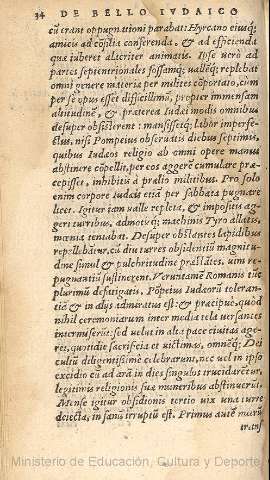 34 DE BELLO IVDAICO
cũ erant oppugnationi parabat: Hyrcano eiusq́;
amicis ad cõsilia conferenda, & ad efficienda
quæ iuberet alacriter animatis. Ipse verò ad
partes septentrionales fossamq́; vallẽq́; replebat
omni genere materia per milites cõportato, cum
per se opus esset difficillimũ, propter immensam
altitudinẽ, & præterea Iudæi modis omnibus
desuper obsisterent: mansissetq́; labor imperfe-
ctus, nisi Põpeius obseruatis diebus septimis,
quibus Iudæos religio ab omni opere manus
abstinere cõpellit, per eos aggerẽ cumulare præ-
cepisset, inhibitis à prælio militibus. Pro solo
enim corpore Iudæis etiã per sabbata pugnare
licet. Igitur iam valle repleta, & impositis ag-
geri turribus, admotisq́; machinis Tyro allatis,
mœnia tentabat. Desuper obstantes lapidibus
repellebãtur, cũ diu turres obsidentiũ magnitu-
dine simul & pulchritudine præstãtes, vim re-
pugnantiũ sustinerent. Veruntamẽ Romanis tũc
plurimũ defatigatis, Põpeius Iudæorũ toleran-
tiã & in alijs admiratus est: & præcipuè, quòd
nihil ceremoniarum inter media tela versantes
intermiserũt: sed velut in alta pace ciuitas age-
ret, quotidie sacrificia et victimas, omnẽq́; Dei
cultũ diligentissimè celebrarent, nec vel in ipso
excidio cũ ad arã in dies singulos trucidarẽtur,
legitimis religionis suæ muneribus abstinuerũt.
Mense igitur obsidionis tertio vix una turre
deiecta, in fanũ irruptũ est. Primus autẽ murũ
trans
Ministerio de Educación, Cultura y Deporte